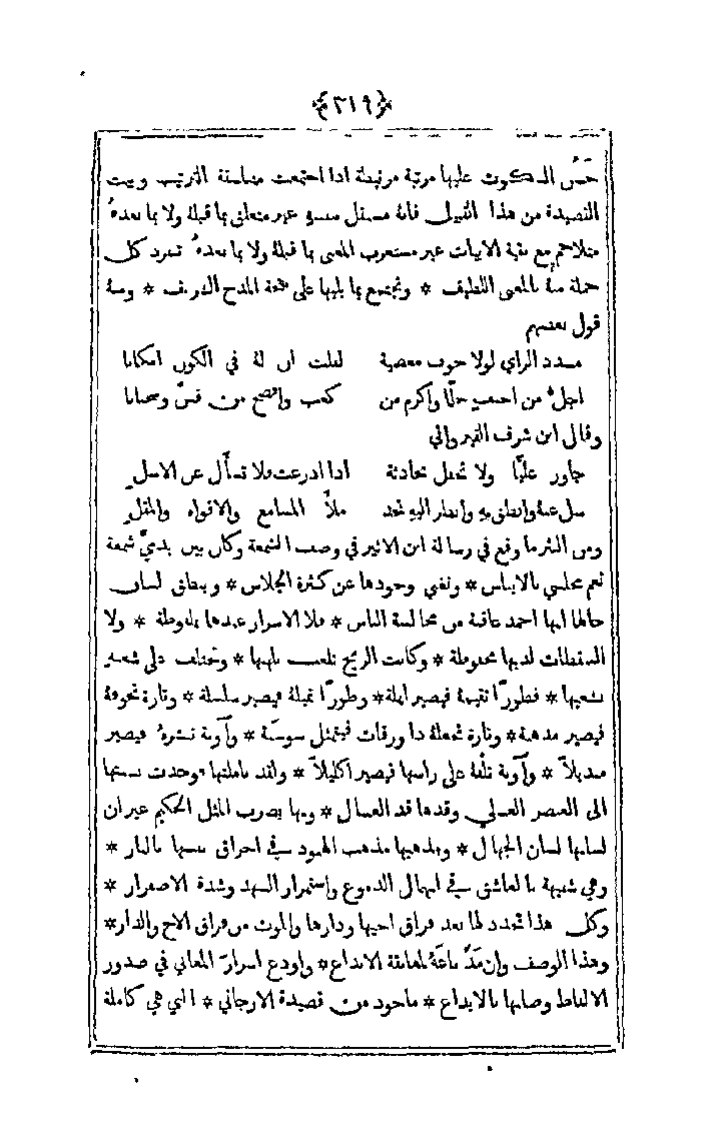 ﴿٢١٩﴾
حَسُنَ السكوت عليها مرتبة مرتبطة اذا اجتمعت متناسقة الترتيب وبيت
القصيدة من هذا القبيل فانهُ مستقل منسق غير متعلق بما قبلهُ ولا بما بعدهُ
متلاحم مع بقية الابيات غير مستغرب المعنى بما قبلهُ ولا بما بعدهُ تنفرد كل
جملة منهُ بالمعنى اللطيف * وتجتمع بما يليها على المدح الشريف * ومنهُ
قول بعضهم
مسدد الراي لولا خوف معصية لقلت ان لهُ في الكون امكانا
اجلُّ من احنف حلمًا واكرم من كعب وافصح من قسٍّ وسحبانا
وقال ابن شرف القيرواني
جاور عليًّا ولا تحفل بحادثة اذا ادرعت فلا تسأَل عن الاسلِ
سل عنهُ وانطق بهِ وانظر اليهِ تجد ملأَ المسامع والافواه والمقلِ
ومن النثر ما وقع في رسالة ابن الاثير في وصف الشمعة وكان بين يديَّ شمعة
تعم مجلسي بالايناس * وتغني بوجودها عن كثرة الجلاس * وينطق لسان
حالها انها احمد عاقبة من مجالسة الناس * فلا الاسرار عندها ملفوظة * ولا
السقطات لديها محفوظة * وكانت الريح تلعب بلهبها * وتختلف على شعب
شعبها * فطورًا تقيمهُ فيصير انملة * وطورًا تميلهُ فيصير سلسلة * وتارة تجوفهُ
فيصير مدهنة * وتارة تجعلهُ ذا ورقات فيتمثل سوسنة * وآونة تنشرهُ فيصير
منديلاً * وآونة تلفهُ على راسها فيصير اكليلاً * ولقد تاملتها فوجدت نسبتها
الى العنصر العسلي وقدها قد العسال * وبها يضرب المثل الحكيم غير ان
لسانها لسان الجهال * ومذهبها مذهب الهنود في احراق نفسها بالنار *
وهي شبيهة بالعاشق في انهمال الدموع واستمرار السهد وشدة الاصفرار *
وكل هذا تجدد لها بعد فراق اخيها ودارها والموت من فراق الاخ والدار *
وهذا الوصف وان مَدَّ باعَهُ لمعانقة الابداع * واودع اسرارَ المعاني في صدور
الالفاظ وصانها بالايداع * ماخوذ من قصيدة الارجاني * التي هي كاملة